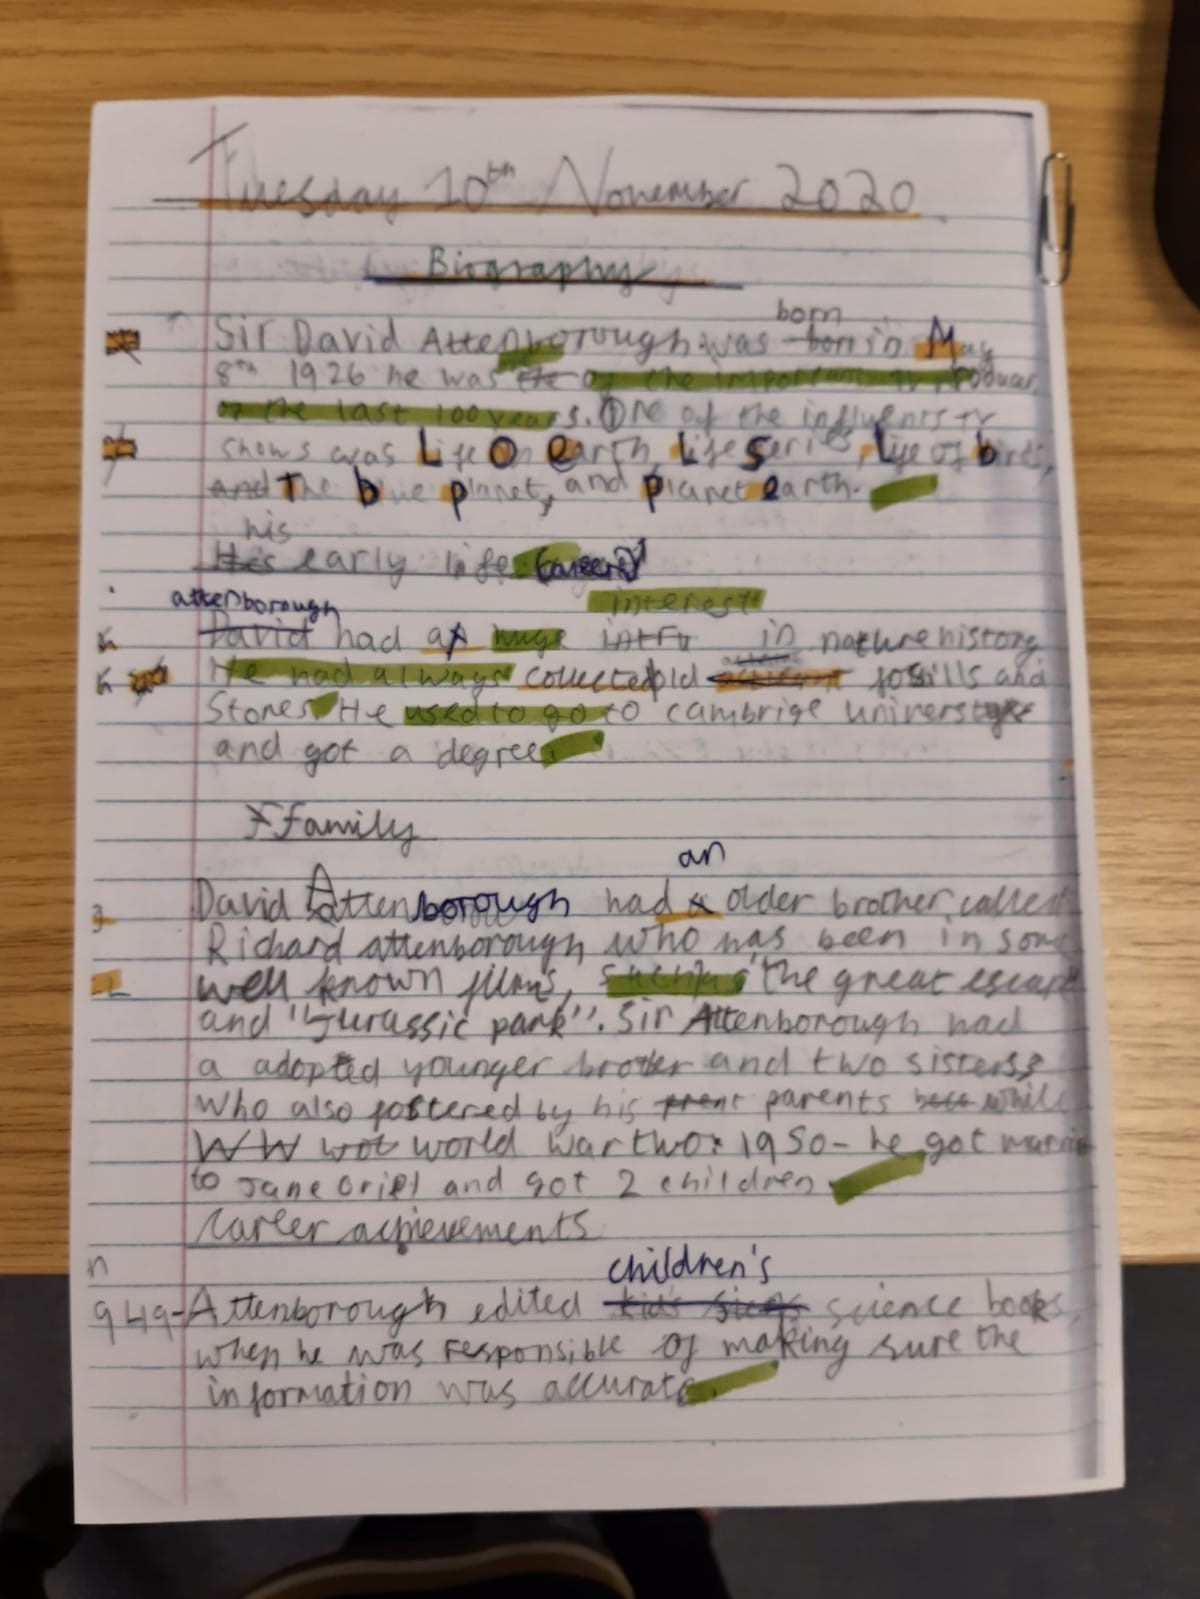 Tuesday 10th November 2020
Biography
born
Sir David Attenborough was born in May
8th 1926 he was of the important tv producer
of the last 100 years. One of the influents tv
shows was Life On earth, Life Series, Lije of birds,
and The blue planet, and planet earth.
his
He's early life Career
attenborough
interest
David had a huge intru in nature history
He had always collected old fossills and
Stones He used to go to cambrige
and got a degree.
Ffamily
an
David Attenborough had a older brother, called
Richard attenborough who has been in some
well known films, such as "the great escape"
and "Jurassic park". Sir Attenborough had
a adopted younger broter and two sisters
who also fostered by his prent parents while
WW wot world war two: 1950- he got
to Jane Oriel and got 2 children
Career achievements
n
children's
949-Attenborough edited kid's science books,
when he was responsible of making sure the
information was accurate.